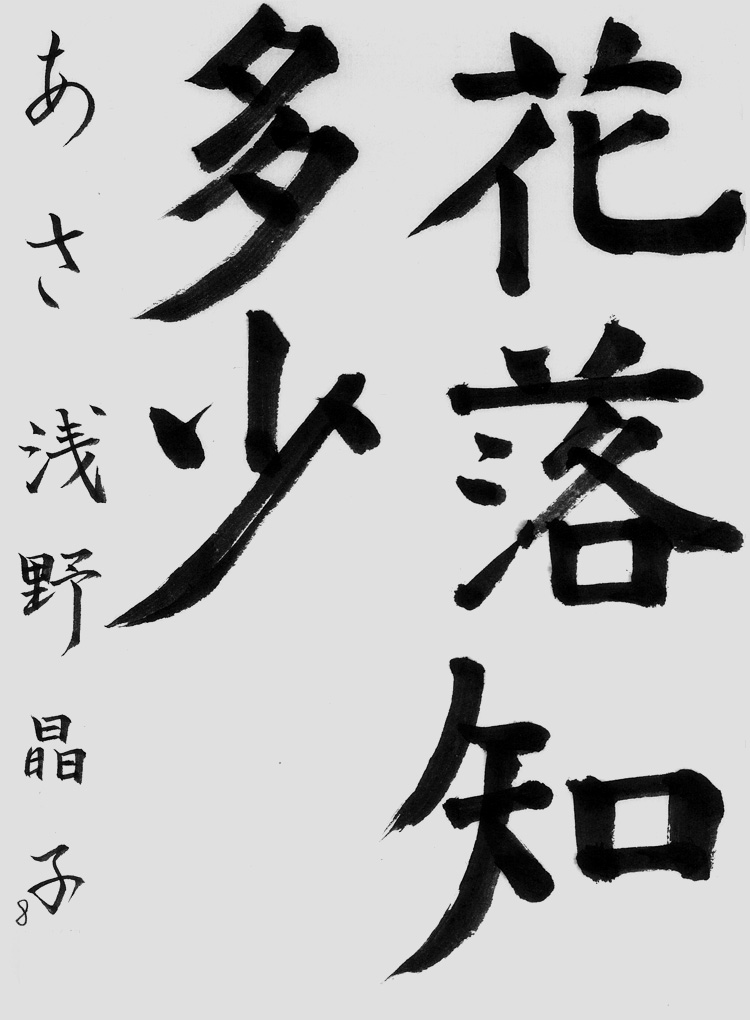 花落知
多少
あさ 浅野晶子
8